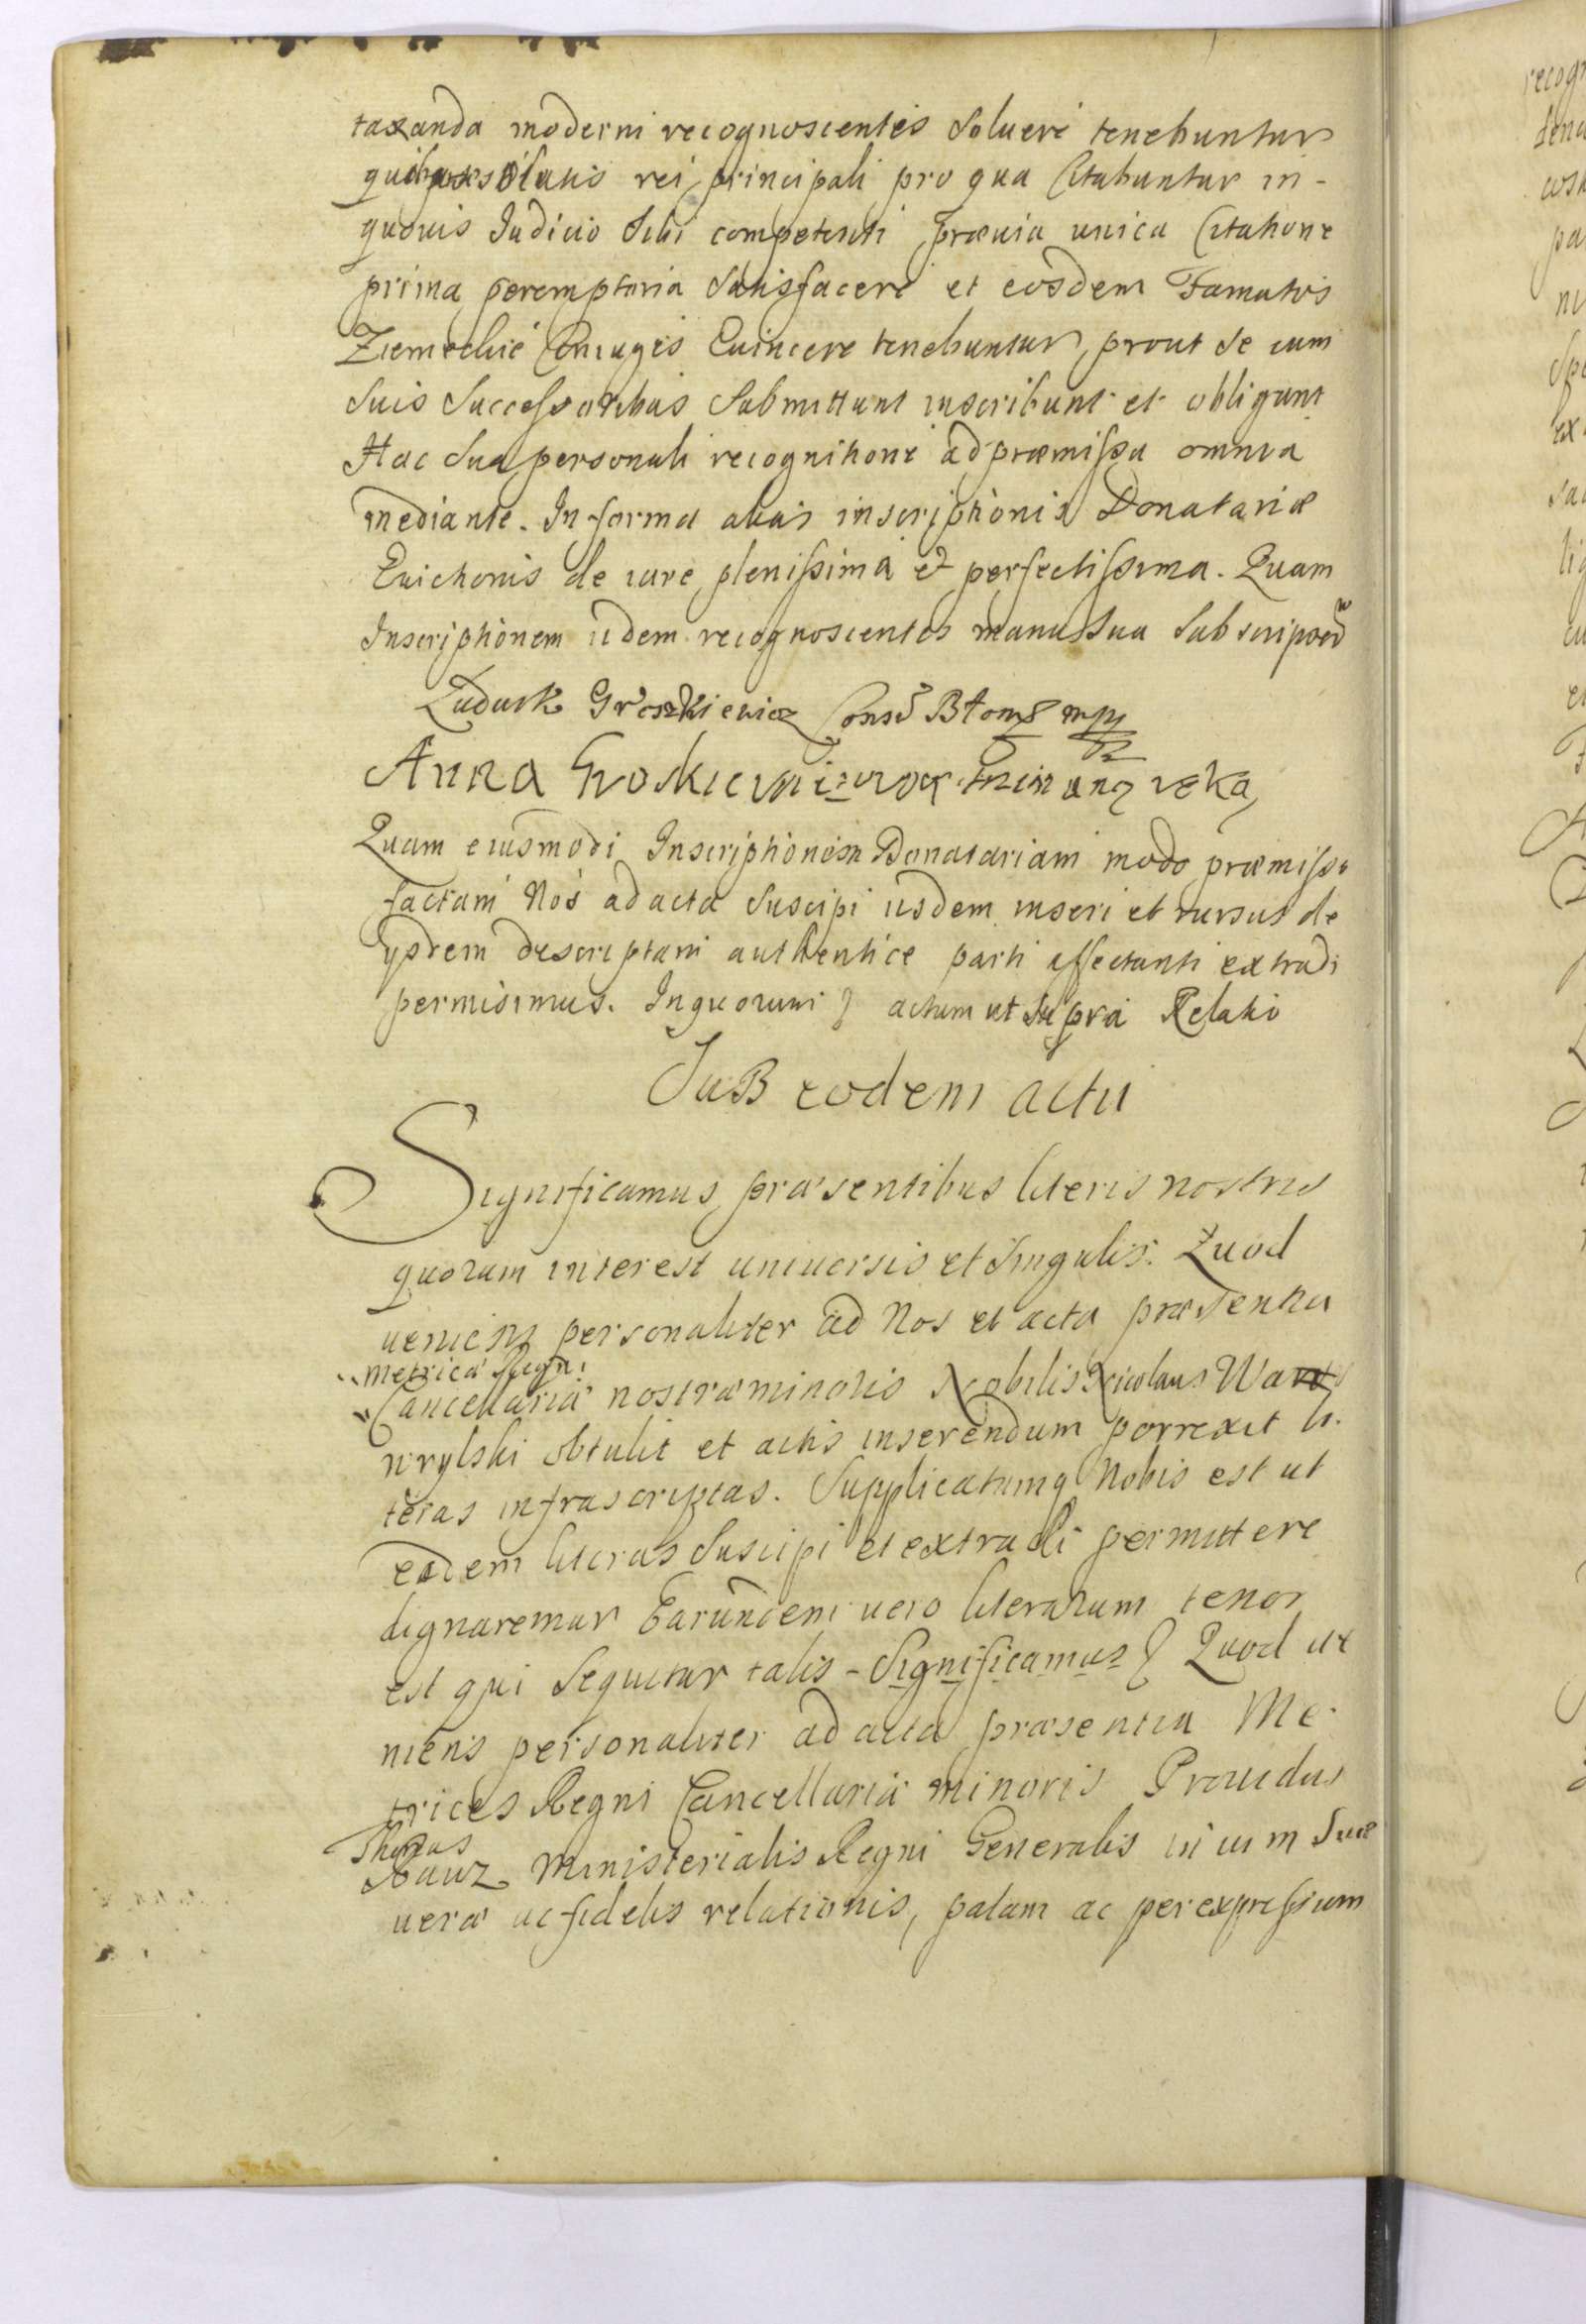 taxanda moderni recognoscentes soluere tenebuntur
quibus solutis rei principali pro qua Citabuntur in-
quouis Iudicio sibi competenti præuia unica Citatione
prima peremptoria satisfacere et eosdem Famatos
Ziemechie Coniuges Euincere tenebuntur, prout se cum
suis successoribus submittunt inscribunt et obligant
Hac sua personali recognitione ad præmissa omnia
mediante. In forma alias inscriptionis Donatariæ
Euictionis de iure plenissima et perfectissima. Quam
Inscriptionem iidem recognoscentes manu sua subscripser
Ludwik Groszkiewicz Cons Blons mp
Anna Groskiewiczowa ręką
Quam eiusmodi Inscriptionem Donatariam modo præmisso
factam Nos ad acta suscipi iisdem inseri et rursus de
ijsdem descriptam authentice parti affectanti extradi
permisimus. In quorum actum ut supra Relatio
SuB eodem actu
Significamus præsentibus literis nostris
quorum interest uniuersis et singulis. Quod
ueniens personaliter ad Nos et acta præsentia
metrices Regni
Cancellariæ nostræ minoris Nobilis Nicolaus Wa
wrylski obtulit et actis inserendum porrexit li-
teras infrascriptas. Supplicatumq Nobis est ut
eadem literas suscipi et extradi permittere
dignaremur Earundem uero literarum tenor
est qui sequitur talis - Significamus Quod ue
niens personaliter ad acta præsentia Me-
trices Regni Cancellariæ minoris Prouidus
Thomas
Ministerialis Regni Generalis in uim suæ
ueræ ac fidelis relationis, palam ac per expressum